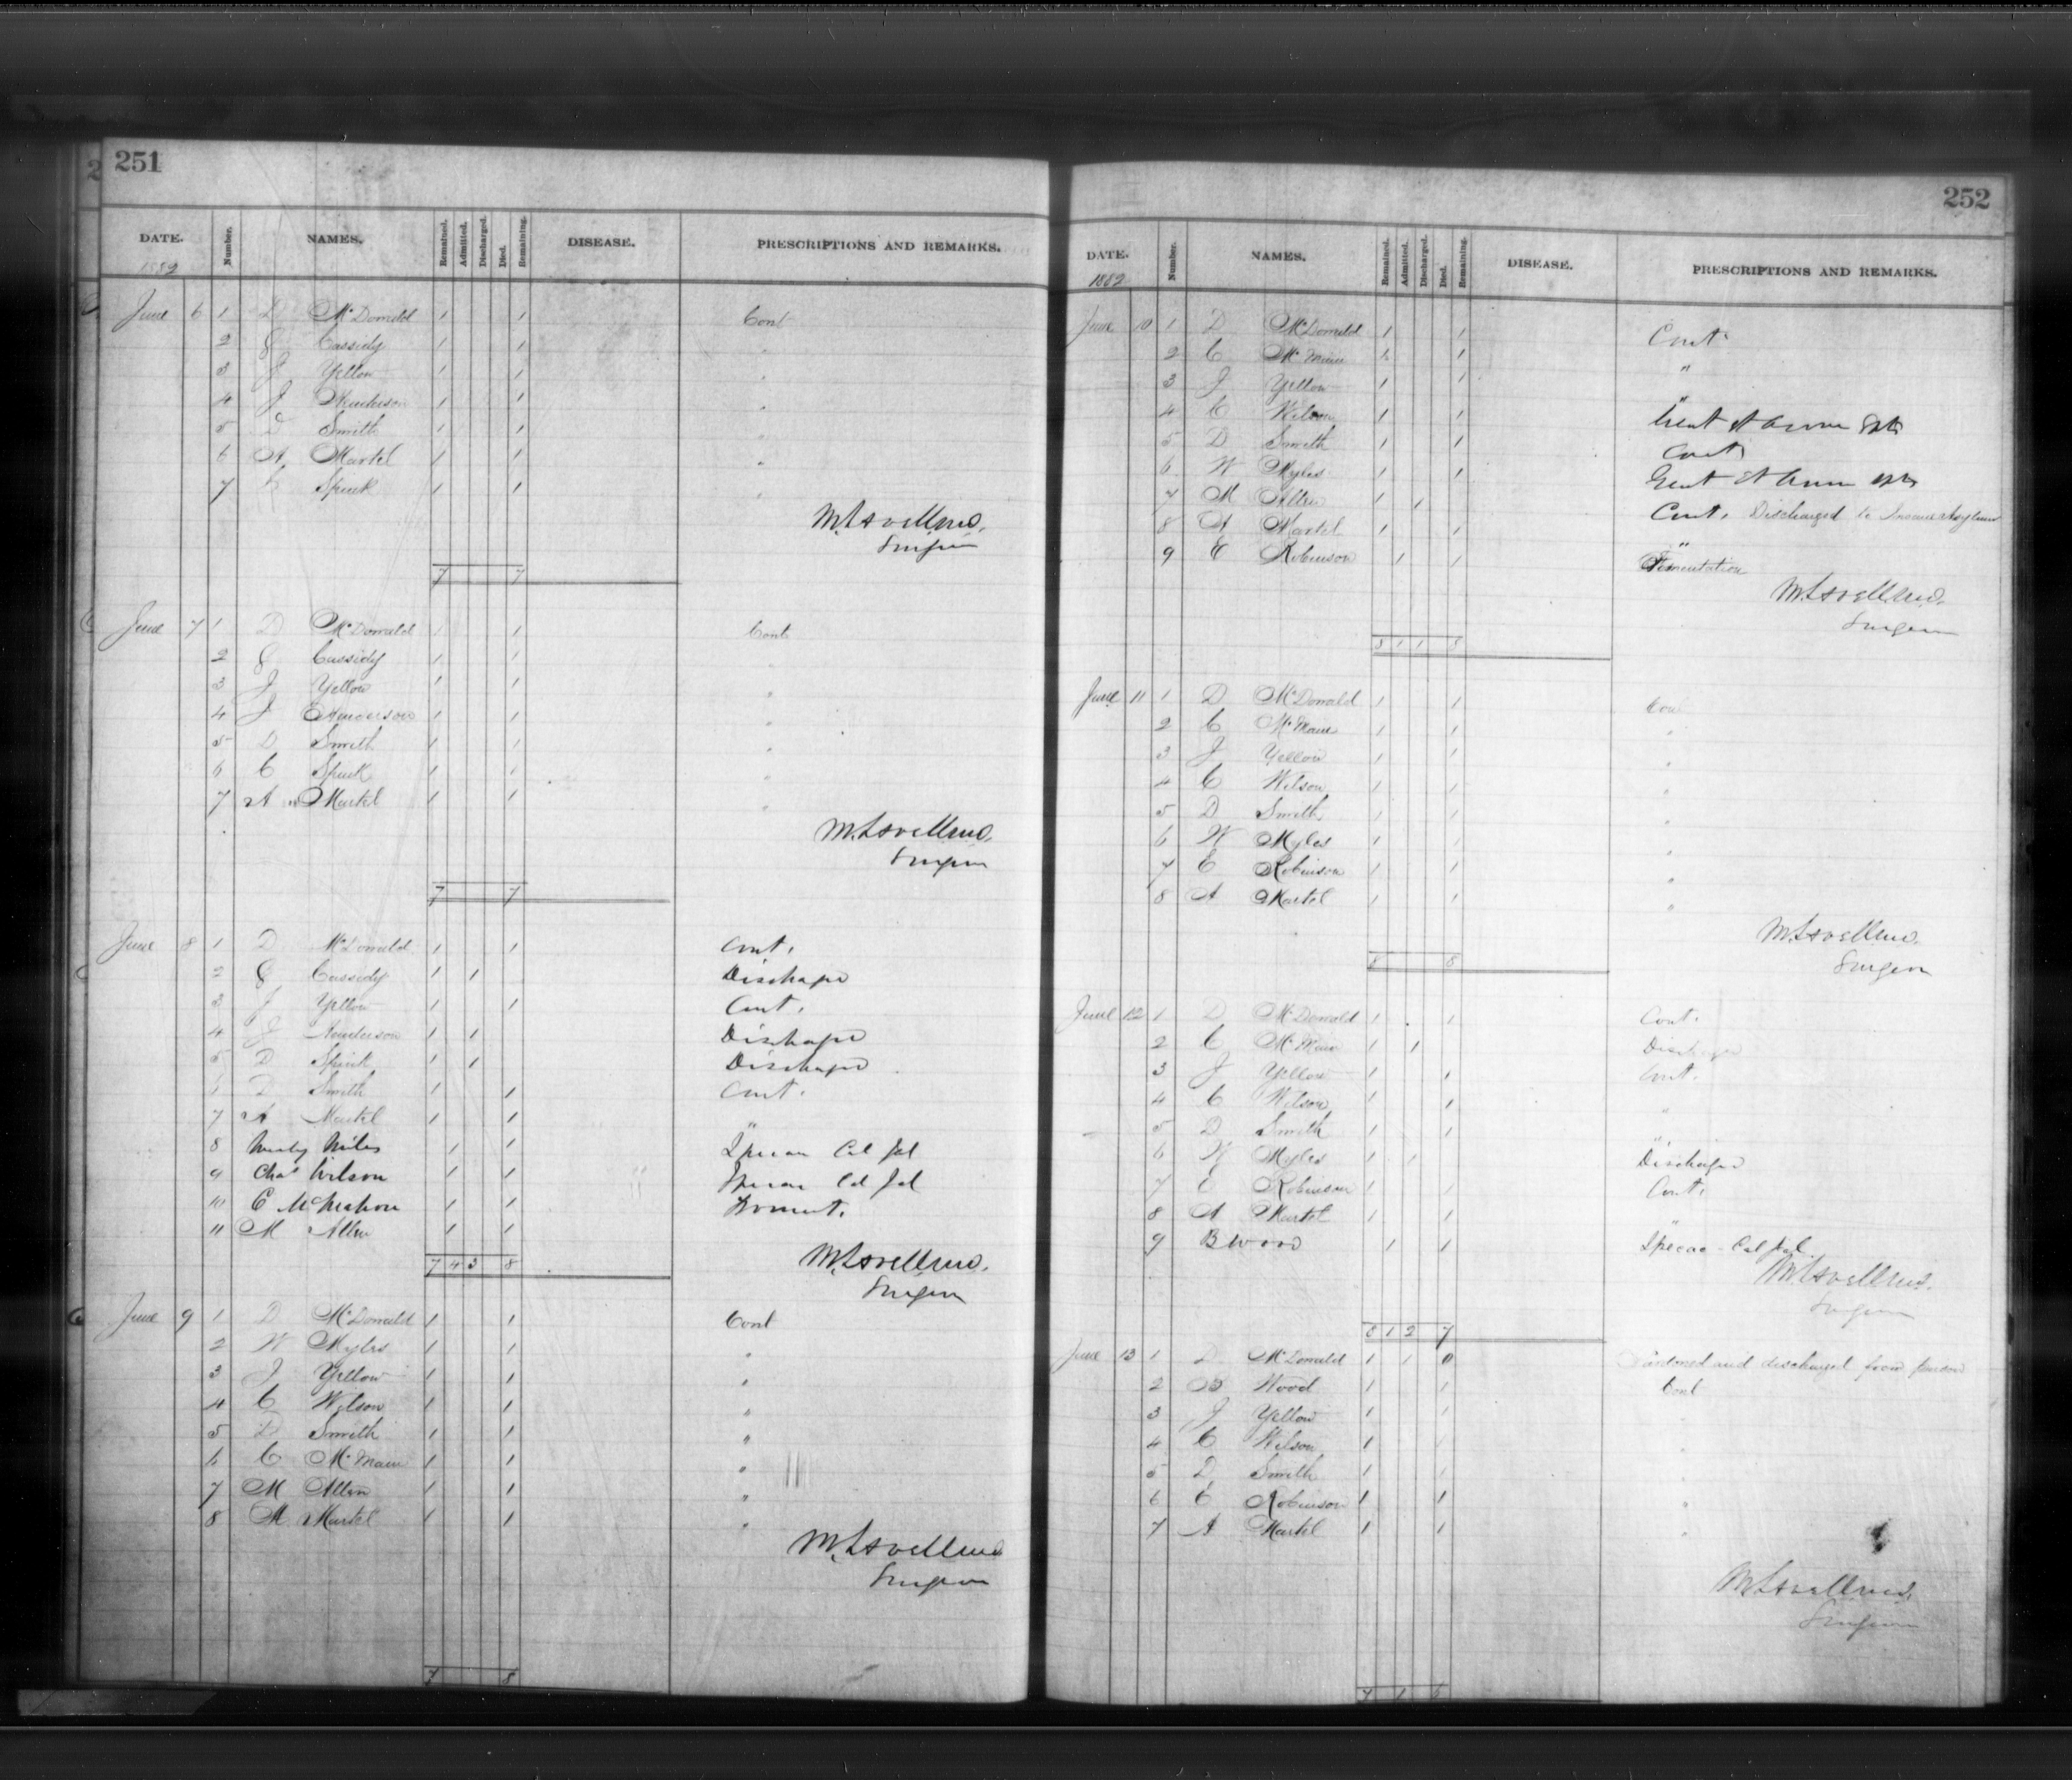 251
DATE. Number. NAMES. Remained. Admitted. Discharged. Died. Remaining. DISEASE. PRESCRIPTIONS AND REMARKS.
1889
June 6 1 D McDonald 1 1 Cont
2 J Cassidy 1 1 "
3 J Yellow 1 1 "
4 J Henderson 1 1 "
5 D Smith 1 1 "
6 A Martel 1 1 "
7 Spink 1 1 "
Surgeon
7 7
June 7 1 D McDonald 1 1 Cont
2 J Cassidy 1 1
3 J Yellow 1 1 "
4 J Henderson 1 1 "
5 D Smith 1 1 "
6 C Spink 1 1 "
7 A Martel 1 1 "
Surgeon
7 7
June 8 1 D McDonald 1 1 Cont.
2 J Cassidy 1 1 Discharge
3 J Yellow 1 1 Cont.
4 J Henderson 1 1 Discharge
5 D Spink 1 1 Discharge
6 D Smith 1 1 Cont.
7 A Martel 1 1 "
8 Miles 1 1 Ipecac Cal Jal
9 Chas Wilson 1 1 Ipecac Cal Jal
10 C McMahon 1 1 Foment.
11 M Allen 1 1
Surgeon
7 4 3 8
June 9 1 D McDonald 1 1 Cont
2 W Myles 1 1 "
3 J Yellow 1 1 "
4 C Wilson 1 1 "
5 D Smith 1 1 "
6 C McMain 1 1 "
7 M Allen 1 1 "
8 A Martel 1 1 "
Surgeon
7 8
252
DATE. Number. NAMES. Remained. Admitted. Discharged. Died. Remaining. DISEASE. PRESCRIPTIONS AND REMARKS.
1889
June 10 1 D McDonald 1 1 Cont
2 C McMain 1 1 "
3 J Yellow 1 1 "
4 C Wilson 1 1
5 D Smith 1 1 Cont
6 W Myles 1 1
7 M Allen 1 1 Cont. Discharged to Insane Asylum
8 A Martel 1 1 "
9 E Robinson 1 1 Fomentation
Surgeon
8 1 1 8
June 11 1 D McDonald 1 1 Cont
2 C McMain 1 1 "
3 J Yellow 1 1 "
4 C Wilson 1 1 "
5 D Smith 1 1 "
6 W Myles 1 1 "
7 E Robinson 1 1 "
8 A Martel 1 1 "
Surgeon
8 8
June 12 1 D McDonald 1 1 Cont.
2 C McMain 1 1 Discharge
3 J Yellow 1 1 Cont.
4 C Wilson 1 1 "
5 D Smith 1 1 "
6 W Myles 1 1 Discharge
7 E Robinson 1 1 Cont.
8 A Martel 1 1 "
9 B Wood 1 1 Ipecac - Cal Jal.
Surgeon
8 1 2 7
June 13 1 D McDonald 1 1 0 Pardoned and discharged from prison
2 B Wood 1 1 Cont
3 J Yellow 1 1 "
4 C Wilson 1 1 "
5 D Smith 1 1
6 E Robinson 1 1 "
7 A Martel 1 1 "
Surgeon
7 1 6